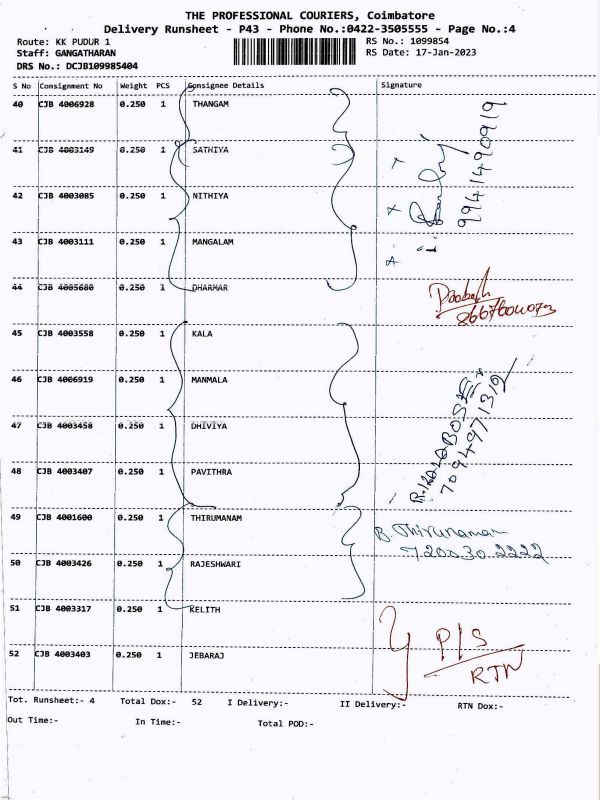 THE PROFESSIONAL COURIERS, Coimbatore
Delivery Runsheet - P43 - Phone No.:0422-3505555 - Page No.:4
Route: KK PUDUR 1 RS No.: 1099854
Staff: GANGATHARAN RS Date: 17-Jan-2023
DRS No.: DCJB109985404
S No Consignment No Weight PCS Consignee Details Signature
40 CJB 4006928 0.250 1 THANGAM
41 CJB 4003149 0.250 1 SATHIYA
42 CJB 4003085 0.250 1 NITHIYA
9941490919
43 CJB 4003111 0.250 1 MANGALAM
44 CJB 4005680 0.250 1 DHARMAR
45 CJB 4003558 0.250 1 KALA
46 CJB 4006919 0.250 1 MANMALA
47 CJB 4003458 0.250 1 DHIVIYA
48 CJB 4003407 0.250 1 PAVITHRA
49 CJB 4001600 0.250 1 THIRUMANAM
B. Thirunaman
720030 2222
50 CJB 4003426 0.250 1 RAJESHWARI
51 CJB 4003317 0.250 1 KELITH
P/S
RTN
52 CJB 4003403 0.250 1 JEBARAJ
Tot. Runsheet:- 4 Total Dox:- 52 I Delivery:- II Delivery:- RTN Dox:-
Out Time:- In Time:- Total POD:-